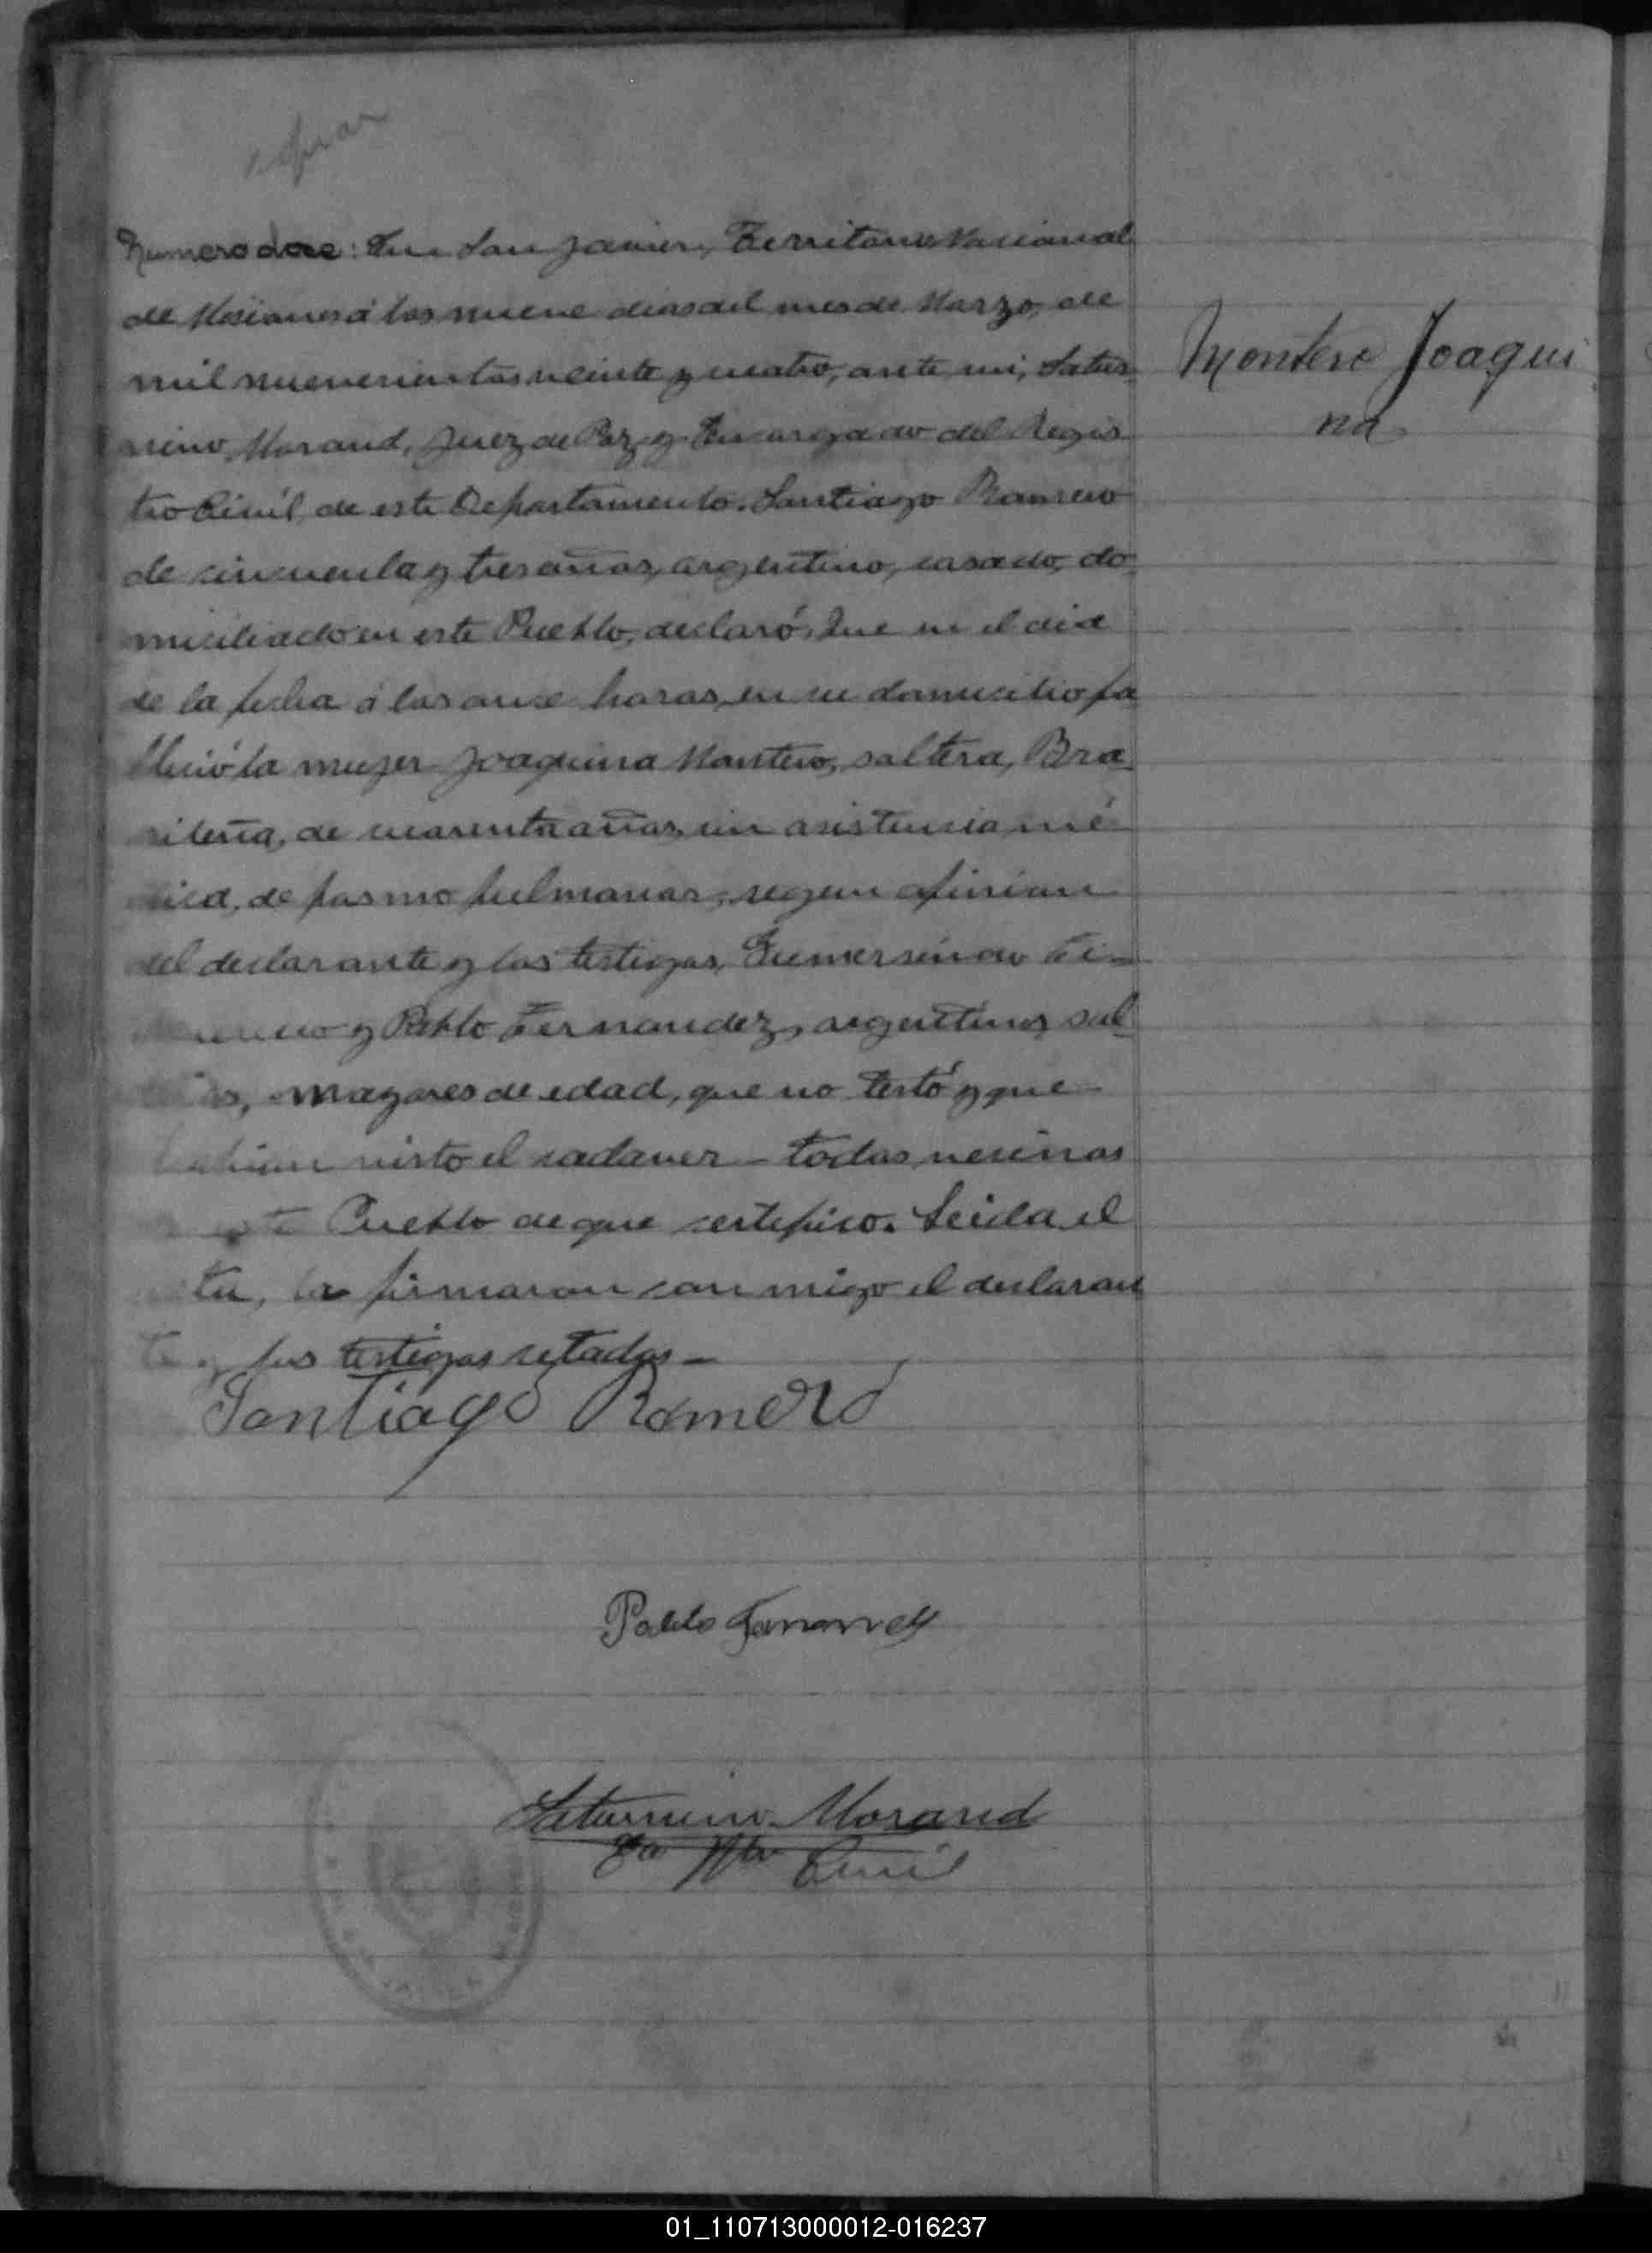 Numero doce: En San Javier, Territorio Nacional
de Misiones á los nueve dias del mes de Marzo, de
mil novecientos veinte y cuatro, ante mi, Satur-
nino Morand, Juez de Paz y Encargado del Regis-
tro Civil, de este Departamento. Santiago Romero
de cincuenta y tres años, argentino, casado, do-
miciliado en este Pueblo, declaró: Que en el dia
de la fecha á las once horas, en su domicilio fa
lleció la mujer Joaquina Montero, soltera, Bra-
sileña, de cuarenta años, sin asistencia mé-
dica, de pasmo pulmonar, segun opinion
del declarante y los testigos, Gumersindo
y Pablo Fernandez, argentinos, sol-
teros, mayores de edad, que no testó y que
habian visto el cadaver – todos vecinos
este Pueblo de que certifico. Leida el
acta, la firmaron conmigo el declaran
te y los testigos citados –
Santiago Romero
Pablo Fernandez
Saturnino Morand
Civil
Montero Joaqui
na
01_110713000012-016237